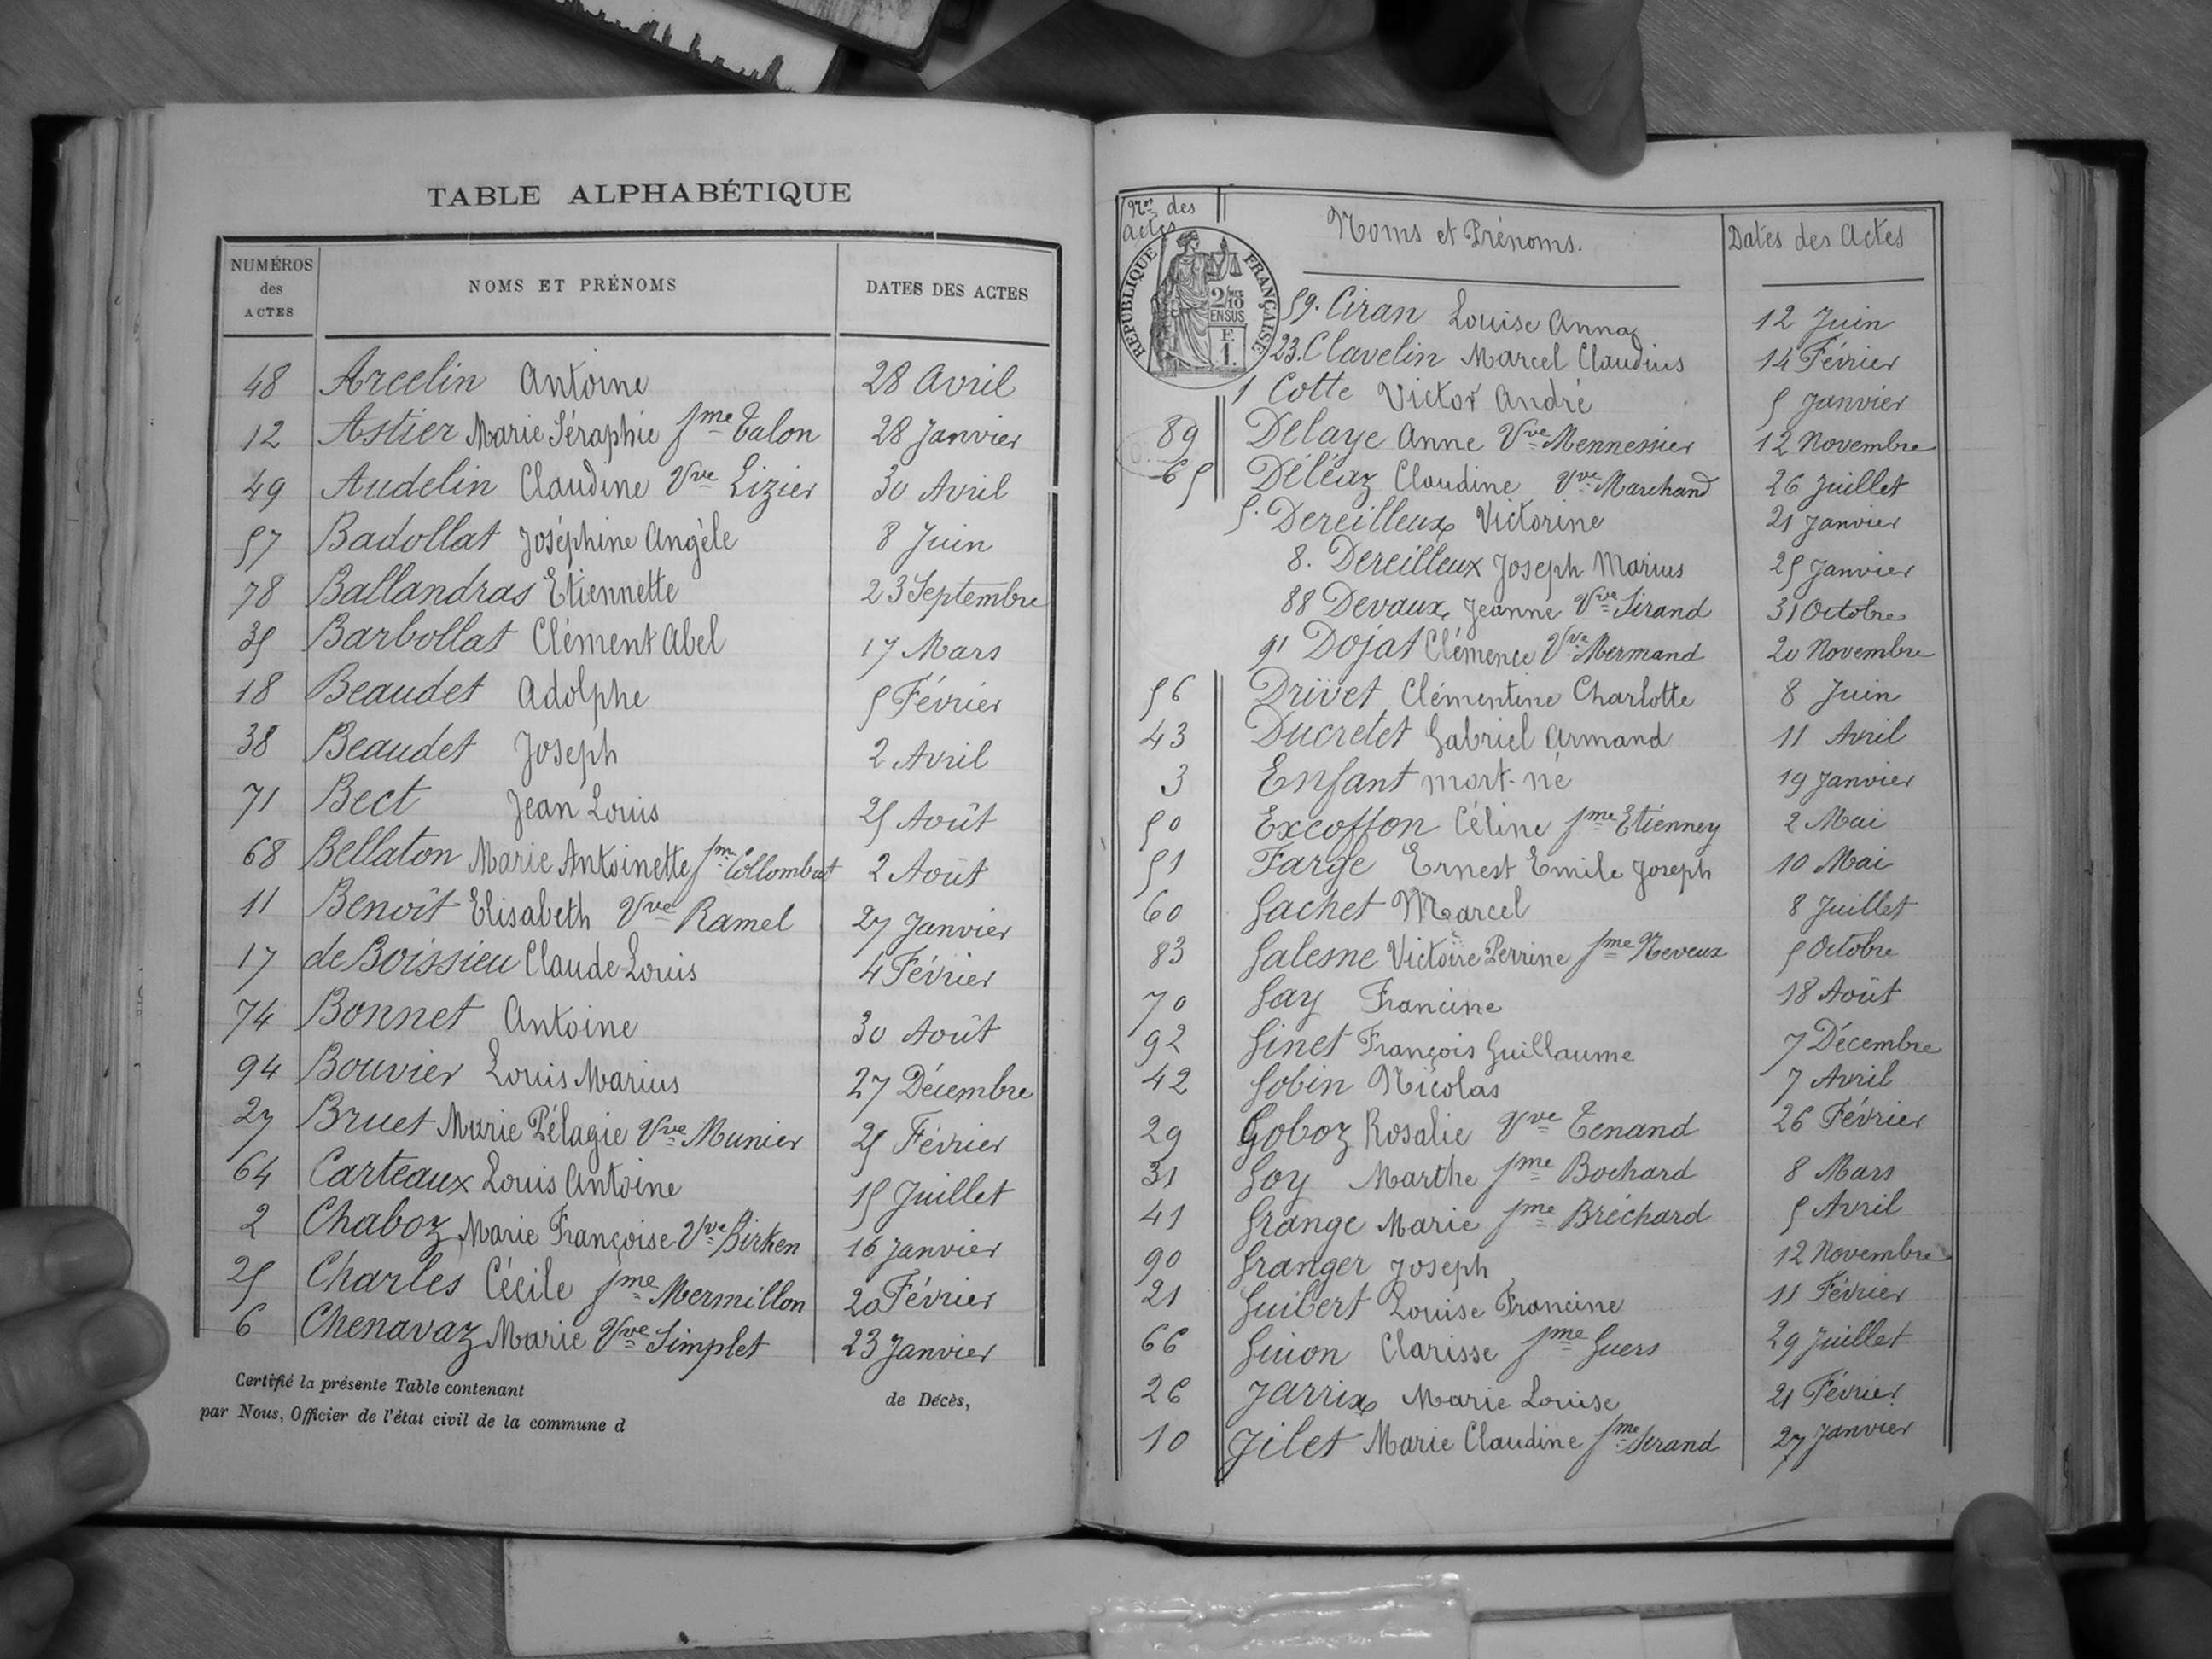 TABLE ALPHABÉTIQUE
NUMÉROS des ACTES NOMS ET PRÉNOMS DATES DES ACTES
48 Arcelin Antoine 28 Avril
12 Astier Marie Séraphie fme Talon 28 Janvier
49 Audelin Claudine Vve Lizier 30 Avril
57 Badollat Joséphine Angèle 8 Juin
78 Ballandras Etiennette 23 Septembre
35 Barbollat Clément Abel 17 Mars
18 Beaudet Adolphe 5 Février
38 Beaudet Joseph 2 Avril
71 Bect Jean Louis 25 Août
68 Bellaton Marie Antoinette fme Collombat 2 Août
11 Benoît Elisabeth Vve Ramel 27 Janvier
17 de Boissieu Claude-Louis 4 Février
74 Bonnet Antoine 30 Août
94 Bouvier Louis Marius 27 Décembre
27 Bruet Marie Pélagie Vve Munier 25 Février
64 Carteaux Louis Antoine 15 Juillet
2 Chaboz Marie Françoise Vve Birken 16 Janvier
25 Charles Cécile fme Mermillon 20 Février
6 Chenavaz Marie Vve Simplet 23 Janvier
Certifié la présente Table contenant de Décès,
par Nous, Officier de l'état civil de la commune d
Nos des actes Noms et Prénoms. Dates des Actes
RÉPUBLIQUE FRANÇAISE
2/10
EN SUS
F.
1.
59. Ciran Louise Anna 12 Juin
23. Clavelin Marcel Claudius 14 Février
1 Cotte Victor André 5 Janvier
89 Delaye Anne Vve Mennessier 12 Novembre
65 Déléaz Claudine Vve Marchand 26 Juillet
5. Dereilleux Victorine 21 Janvier
8. Dereilleux Joseph Marius 25 Janvier
88 Devaux Jeanne Vve Sirand 31 Octobre
91 Dojat Clémence Vve Mermand 20 Novembre
56 Drivet Clémentine Charlotte 8 Juin
43 Ducretet Gabriel Armand 11 Avril
3 Enfant mort-né 19 Janvier
50 Excoffon Céline fme Etienney 2 Mai
51 Farge Ernest Emile Joseph 10 Mai
60 Gachet Marcel 8 Juillet
83 Galesne Victoire Perrine fme Neveux 5 Octobre
70 Gay Francine 18 Août
92 Ginet François Guillaume 7 Décembre
42 Gobin Nicolas 7 Avril
29 Goboz Rosalie Vve Tenand 26 Février
31 Goy Marthe fme Bochard 8 Mars
41 Grange Marie fme Bréchard 5 Avril
90 Granger Joseph 12 Novembre
21 Guibert Louise Francine 11 Février
66 Guion Clarisse fme Guers 29 Juillet
26 Jarrix Marie Louise 21 Février
10 Jilet Marie Claudine fme Serand 27 Janvier